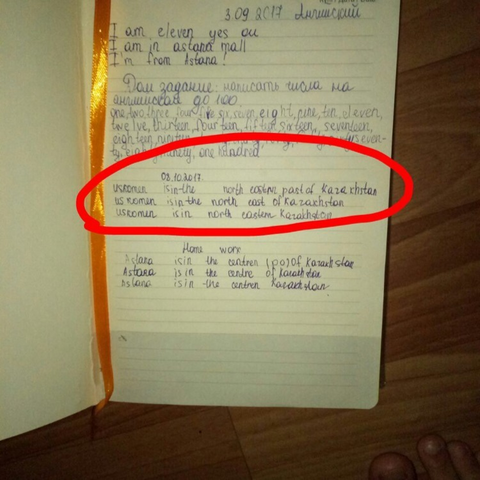 3.09 2017 Английский
I am eleven yes ou
I am in astana mall
I'm from Astana!
Дом задание: написать числа на
английском до 100.
one, two three, four, five six, seven, eight, nine, ten eleven,
twelve, thirteen, fourteen, fifteen sixteen, seventeen,
eighteen,
ty, eighty, ninety, one hundred
03.10.2017.
uskomen is in the north eastern past of Kazakhstan
uskomen is in the north east of Kazakhstan
uskomen is in north eastern Kazakhston
Home work
Astana is in the centren (po) of Kazakhstan
Astana is in the centre of Kazakhstan
Astana is in the centren Kazakhstan